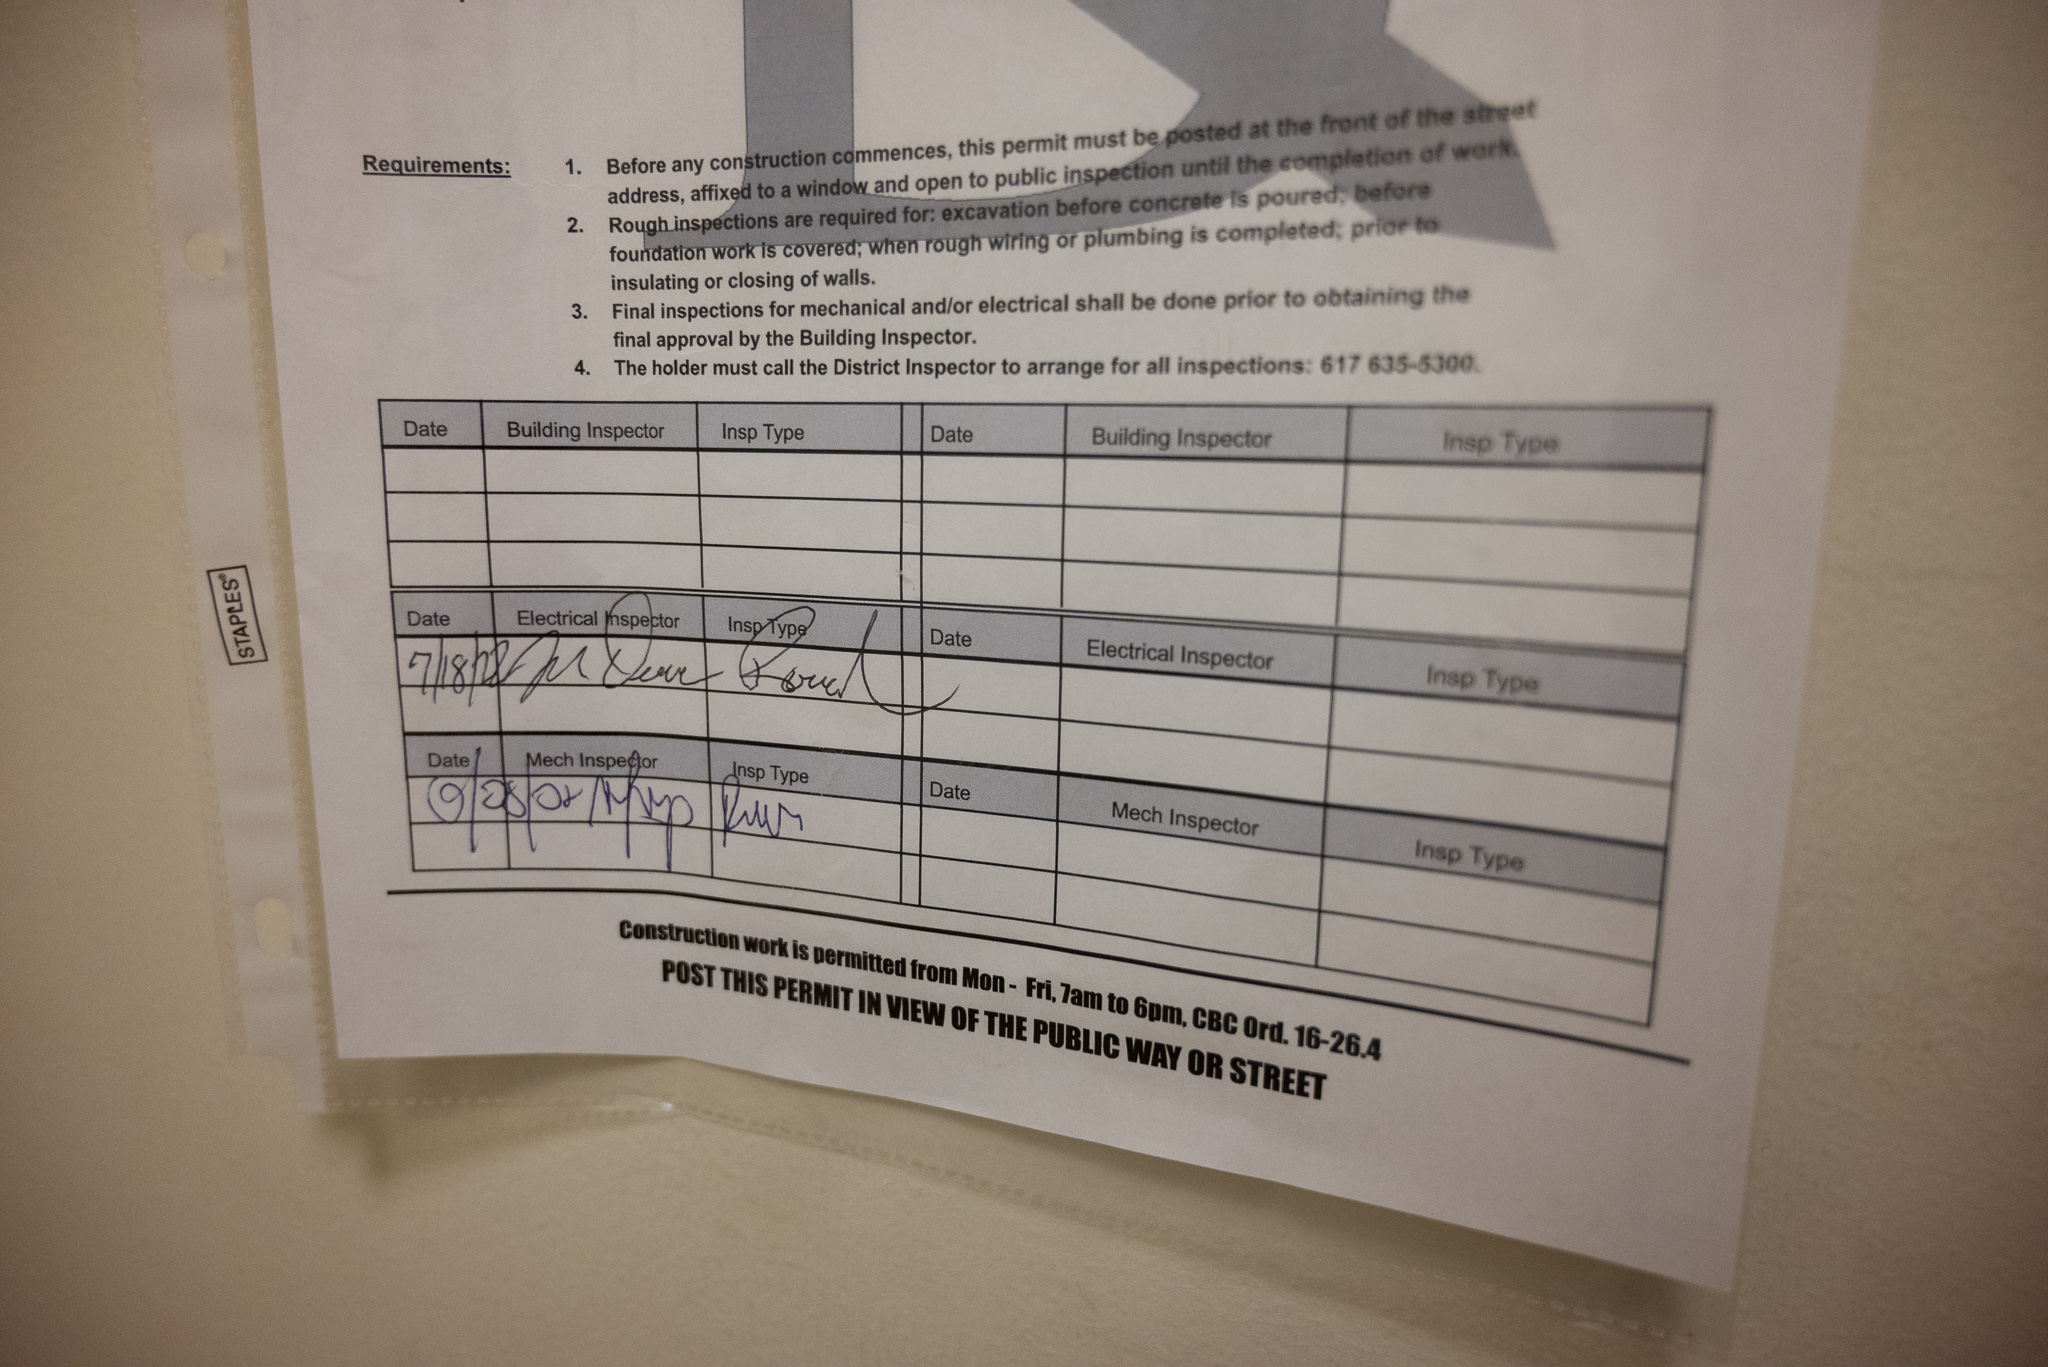 Requirements:
1. Before any construction commences, this permit must be posted at the front of the street
address, affixed to a window and open to public inspection until the completion of work.
2. Rough inspections are required for: excavation before concrete is poured; before
foundation work is covered; when rough wiring or plumbing is completed; prior to
insulating or closing of walls.
3. Final inspections for mechanical and/or electrical shall be done prior to obtaining the
final approval by the Building Inspector.
4. The holder must call the District Inspector to arrange for all inspections: 617 635-5300.
Date Building Inspector Insp Type Date Building Inspector Insp Type
Date Electrical Inspector Insp Type Date Electrical Inspector Insp Type
Date Mech Inspector Insp Type Date Mech Inspector Insp Type
Construction work is permitted from Mon - Fri, 7am to 6pm, CBC Ord. 16-26.4
POST THIS PERMIT IN VIEW OF THE PUBLIC WAY OR STREET
STAPLES®